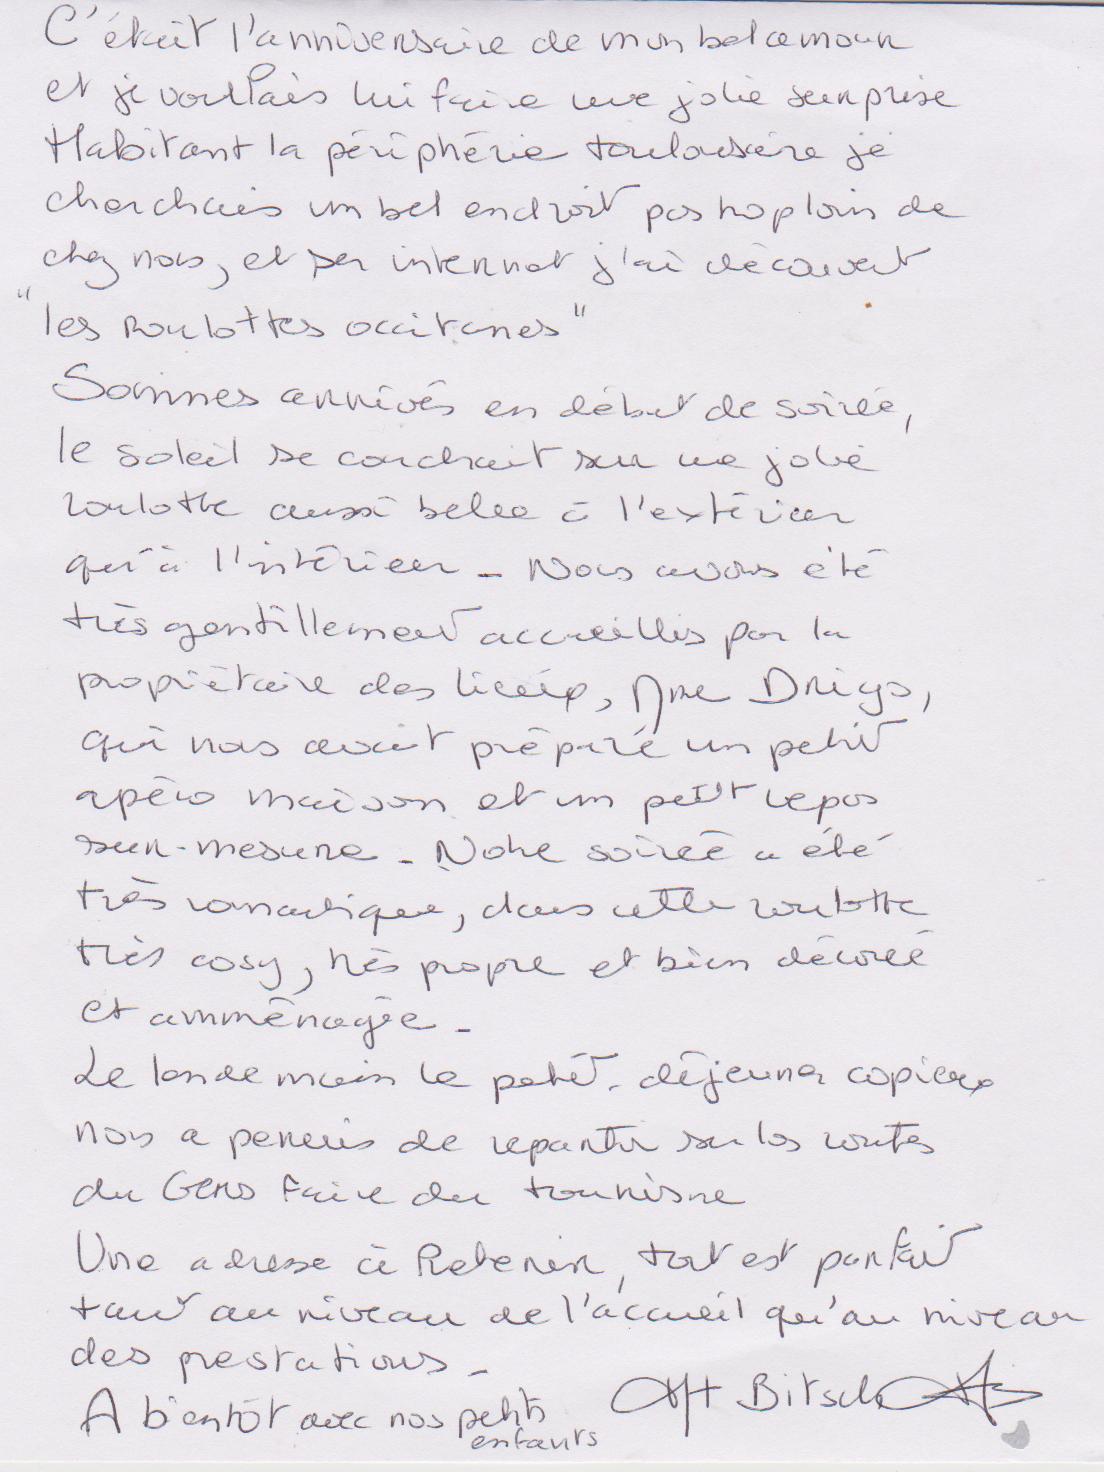 C'était l'anniversaire de mon bel amour
et je voulais lui faire une jolie surprise
Habitant la périphérie toulousaine je
cherchais un bel endroit pas trop loin de
chez nous, et sur internet j'ai découvert
"les roulottes occitanes"
Sommes arrivés en début de soirée,
le soleil se couchait sur une jolie
roulotte aussi belle à l'extérieur
qu'à l'intérieur - Nous avons été
très gentillement accueillis par la
propriétaire des lieux, Mme Drigo,
qui nous avait préparé un petit
apéro maison et un petit repas
sur-mesure - Notre soirée a été
très romantique, dans cette roulotte
très cosy, très propre et bien décorée
et amménagée -
Le lendemain le petit-déjeuner copieux
nous a permis de repartir sur les routes
du Gers faire du tourisme
Une adresse à Retenir, tout est parfait
tant au niveau de l'accueil qu'au niveau
des prestations -
A bientôt avec nos petits
enfants
Bitsch